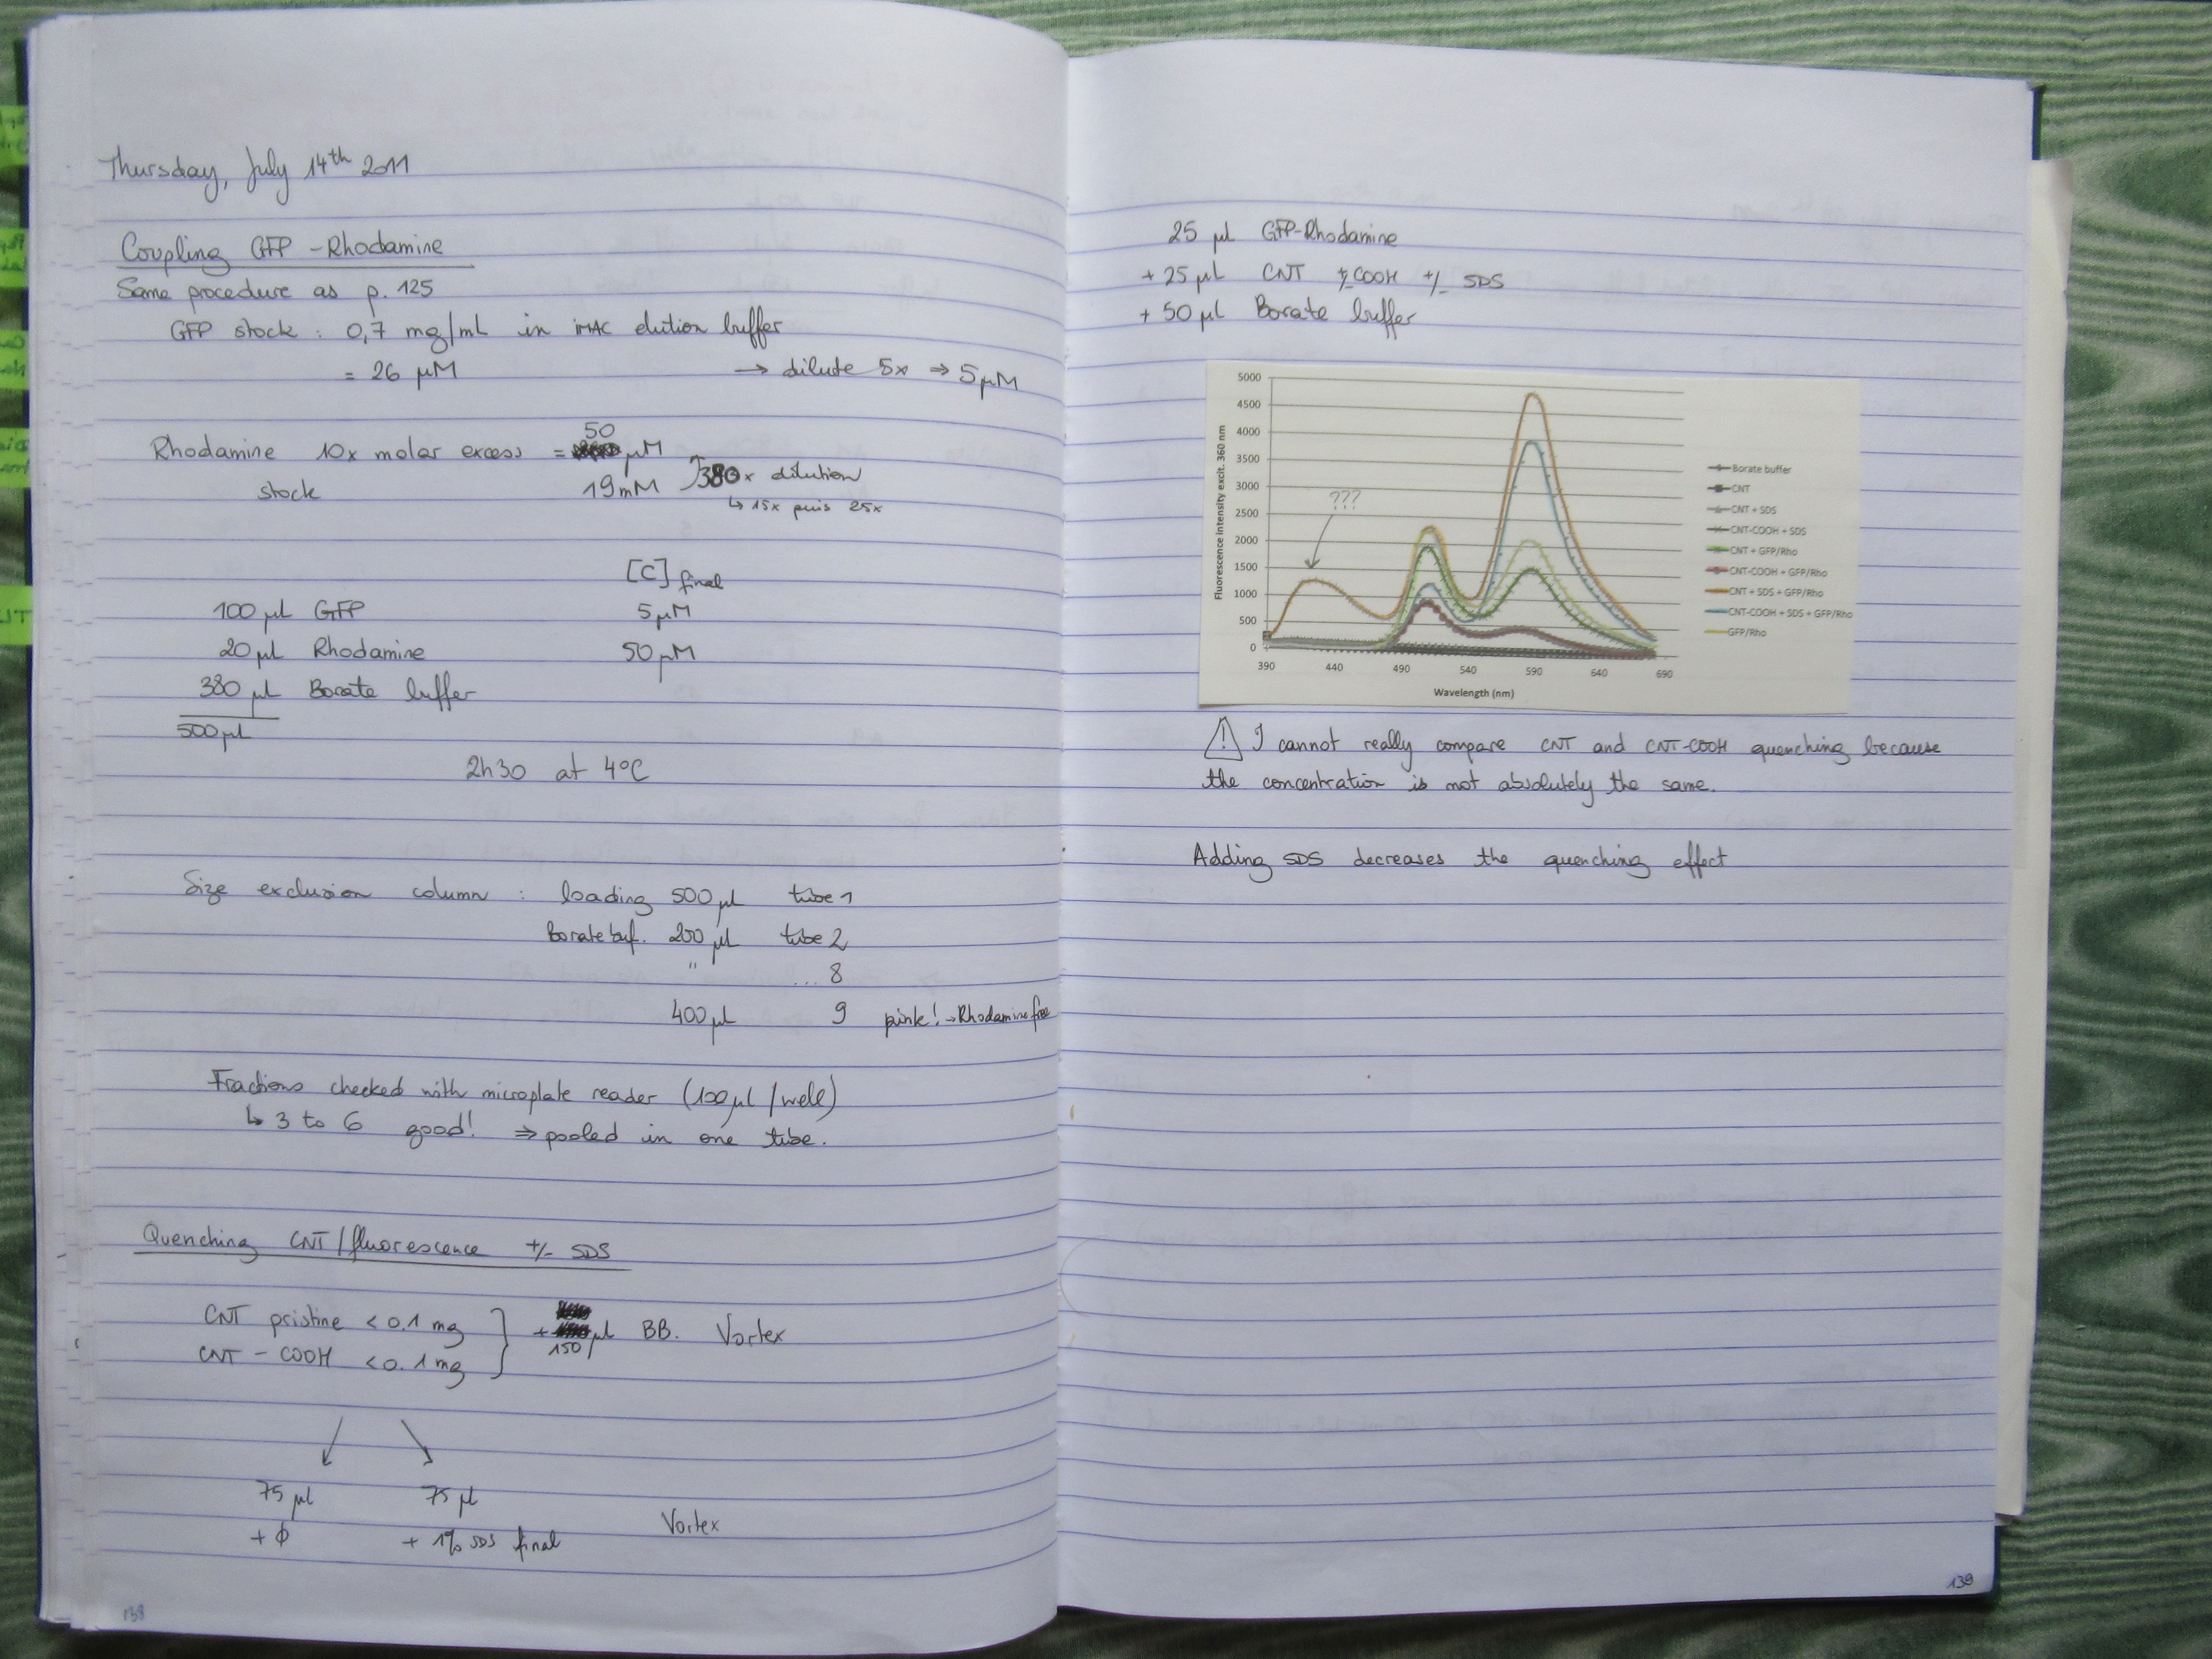 Thursday, July 14th 2011
Coupling GFP - Rhodamine
Same procedure as p. 125
GFP stock : 0,7 mg/mL in iMAC elution buffer
= 26 µM → dilute 5x ⇒ 5 µM
50
Rhodamine 10x molar excess = µM
stock 19 mM 380x dilution
↳ 15x puis 25x
[C] final
100 µl GFP 5 µM
20 µl Rhodamine 50 µM
380 µl Borate buffer
500 µl
2h30 at 4°C
Size exclusion column : loading 500 µl tube 1
Borate buf. 200 µl tube 2
" ... 8
400 µl 9 pink! → Rhodamine free
Fractions checked with microplate reader (100 µl / well)
↳ 3 to 6 good! ⇒ pooled in one tube.
Quenching CNT/fluorescence +/- SDS
CNT pristine < 0.1 mg
CNT - COOH < 0.1 mg
+ µl BB. Vortex
150
75 µl 75 µl
+ ϕ + 1% SDS final Vortex
138
25 µl GFP-Rhodamine
+ 25 µl CNT +/- COOH +/- SDS
+ 50 µl Borate buffer
Fluorescence intensity excit. 360 nm
5000
4500
4000
3500
3000
2500
2000
1500
1000
500
0
390 440 490 540 590 640 690
Wavelength (nm)
???
Borate buffer
CNT
CNT + SDS
CNT-COOH + SDS
CNT + GFP/Rho
CNT-COOH + GFP/Rho
CNT + SDS + GFP/Rho
CNT-COOH + SDS + GFP/Rho
GFP/Rho
! I cannot really compare CNT and CNT-COOH quenching because
the concentration is not absolutely the same.
Adding SDS decreases the quenching effect
139